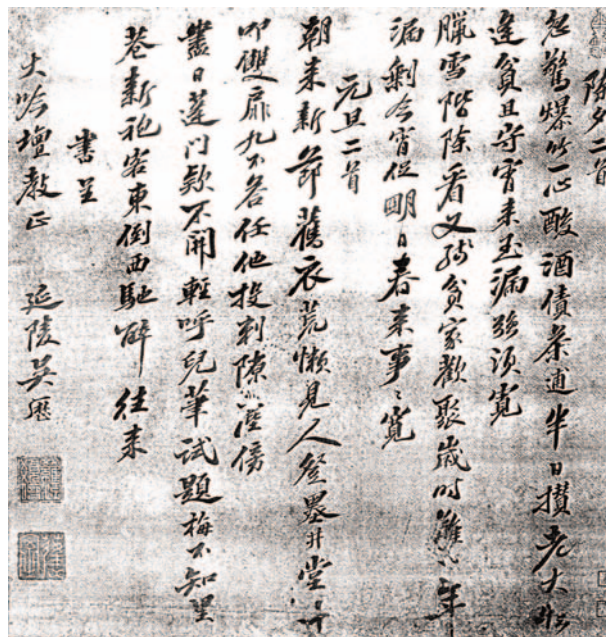 除夕二首
忽驚爆竹一心酸酒債茶逋半日攢老大
逢貧且守宵來玉漏強須寬
臘雪階除看又殘貧家歡聚歲時難年
漏剩今宵促明日春來事〻寬
元旦二首
朝來新節舊衣荒懶見人登墨井堂
叩雙扉九不答任他投刺隙傍
盡日蓬門欵不開輕呼兒筆試題梅不知里
巷新袍客東倒西馳醉往來
書呈
大吟壇教正 延陵吳歷